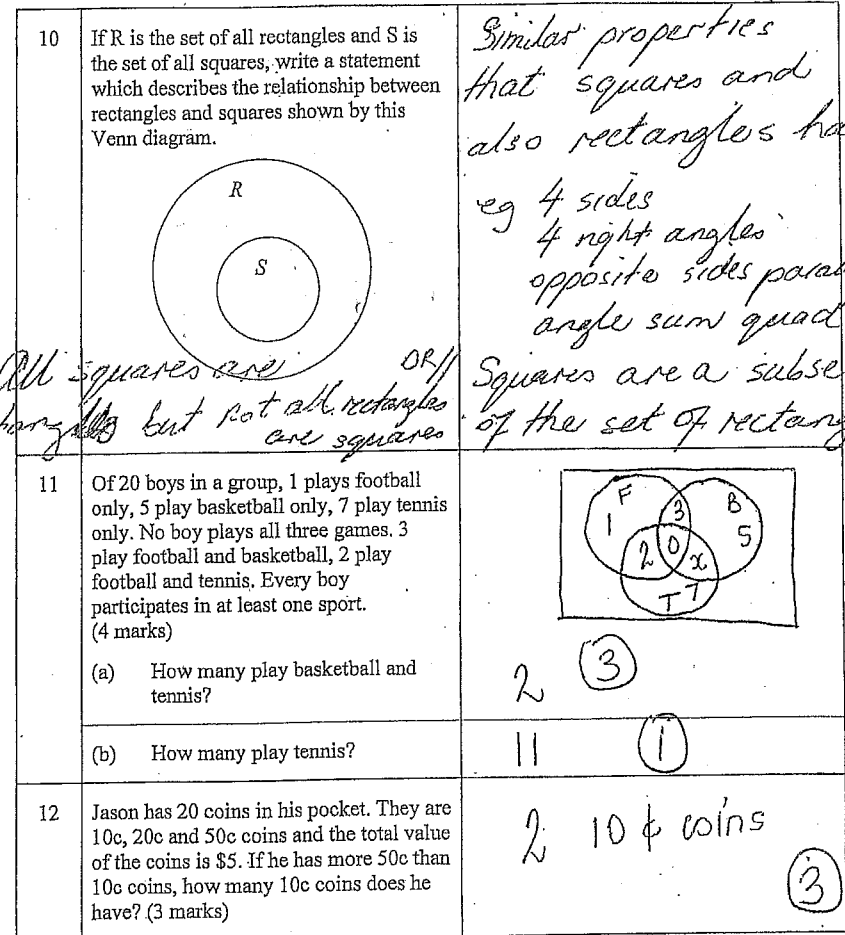 10
If R is the set of all rectangles and S is
the set of all squares, write a statement
which describes the relationship between
rectangles and squares shown by this
Venn diagram.
R
S
All squares are
but not all rectangles
are squares
OR//
Similar properties
that squares and
also rectangles ha
eg 4 sides
4 right angles
opposite sides paral
angle sum quad
Squares are a subse
of the set of rectang
11
Of 20 boys in a group, 1 plays football
only, 5 play basketball only, 7 play tennis
only. No boy plays all three games. 3
play football and basketball, 2 play
football and tennis. Every boy
participates in at least one sport.
(4 marks)
F
B
1
3
5
2
0
x
T 7
(a) How many play basketball and
tennis?
2 3
(b) How many play tennis?
11 1
12
Jason has 20 coins in his pocket. They are
10c, 20c and 50c coins and the total value
of the coins is $5. If he has more 50c than
10c coins, how many 10c coins does he
have? (3 marks)
2 10 ¢ coins
3